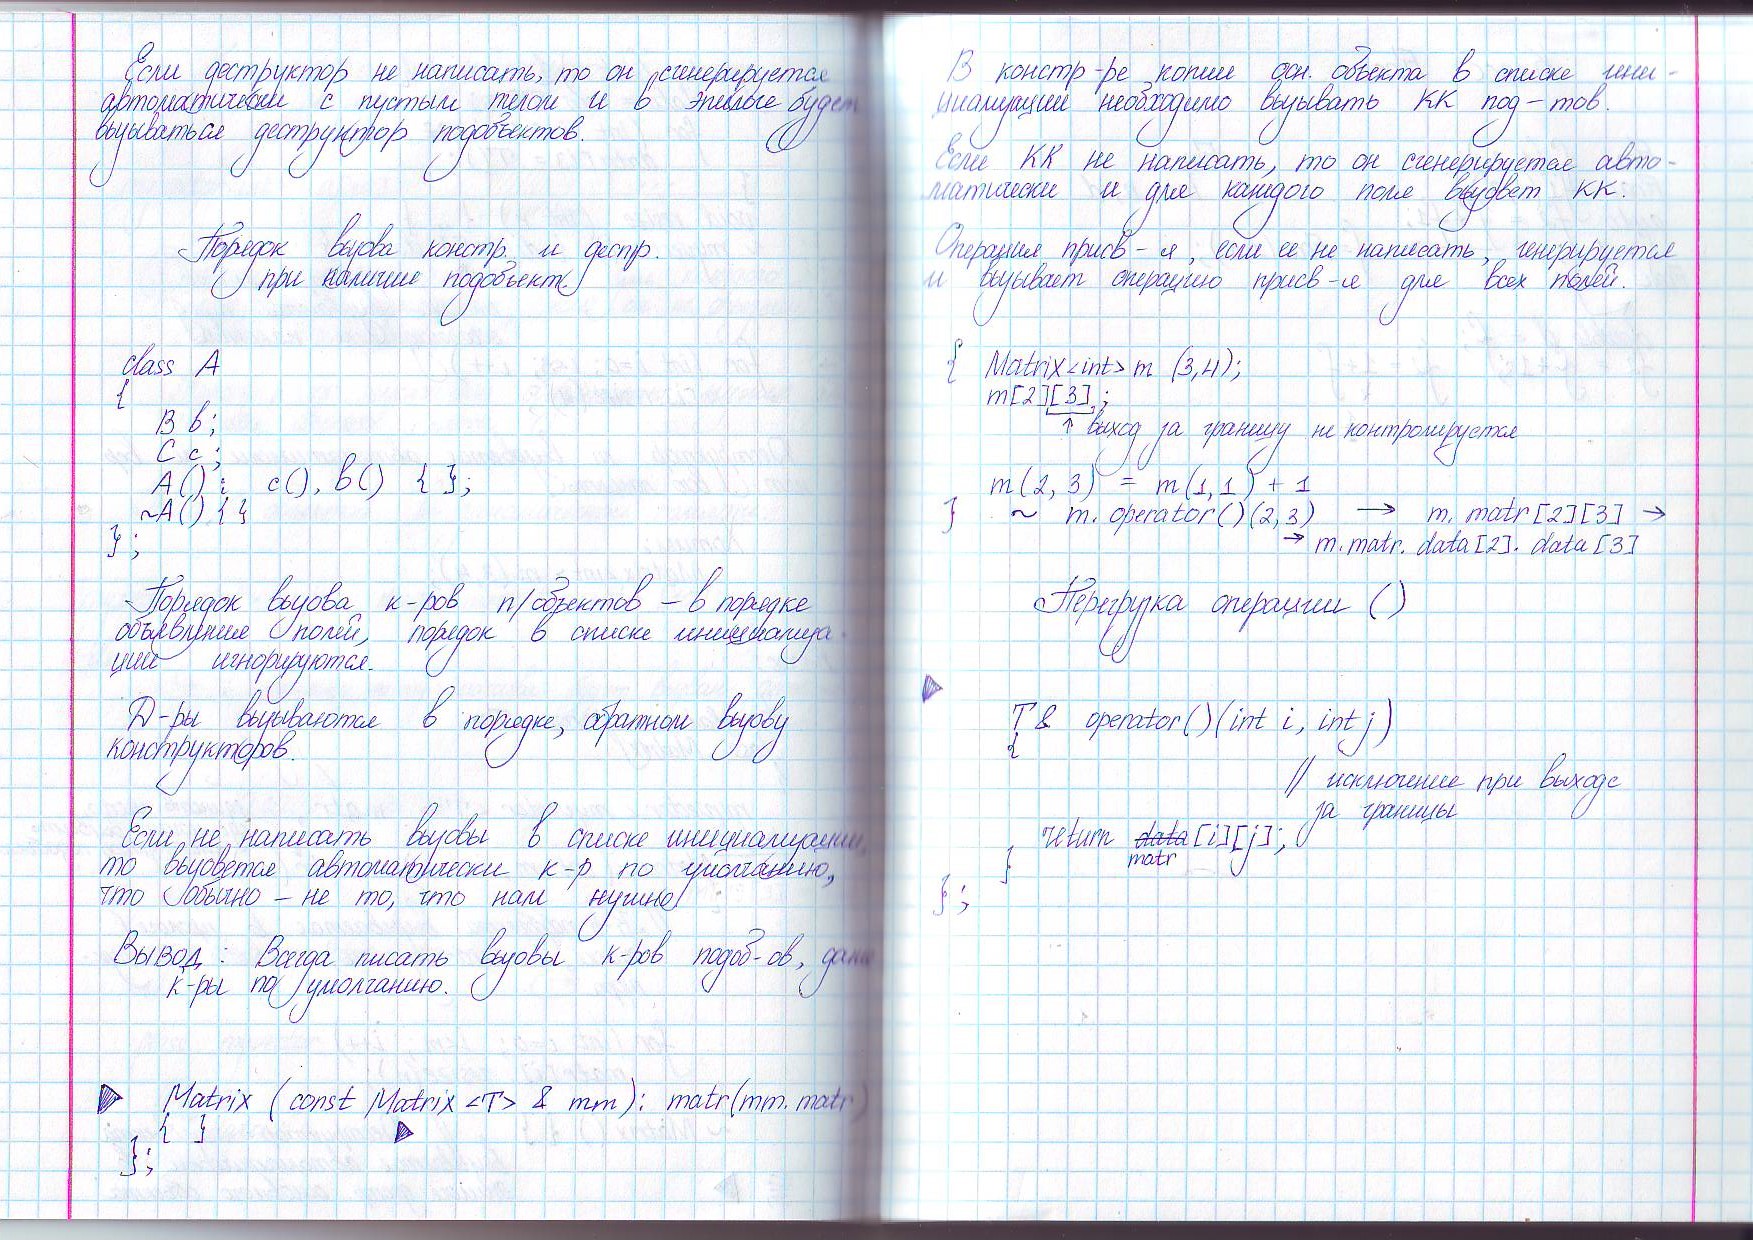 Если деструктор не написать, то он сгенерируется
автоматически с пустым телом и в эпилоге будет
вызываться деструктор подобъектов.
Порядок вызова констр. и дестр.
при наличие подобъект.
class A
{
B b;
C c;
A() : c(), b() { };
~A() { }
};
Порядок вызова к-ров п/объектов – в порядке
объявление полей, порядок в списке инициализа-
ции игнорируются.
Д-ры вызываются в порядке, обратном вызову
конструкторов.
Если не написать вызовы в списке инициализации,
то вызовется автоматически к-р по умолчанию,
что обычно – не то, что нам нужно
Вывод: Всегда писать вызовы к-ров подоб-ов, даже
к-ры по умолчанию.
Matrix (const Matrix <T> & mm): matr(mm.matr)
{ }
};
В констр-ре копие осн. объекта в списке ини-
циализации необходимо вызывать КК под-тов.
Если КК не написать, то он сгенерируется авто-
матически и для каждого поле вызовет КК.
Операция присв-я, если ее не написать, генерируется
и вызывает операцию присв-я для всех полей.
{ Matrix<int> m (3,4);
m[2][3];
↑ выход за границу не контролируется
m(2, 3) = m(1,1) + 1
} ~ m. operator()(2,3) → m. matr[2][3] →
→ m.matr. data[2]. data[3]
Перегрузка операции ()
T& operator()(int i, int j)
{
// исключение при выходе
за границы
return data[i][j];
matr
}
};